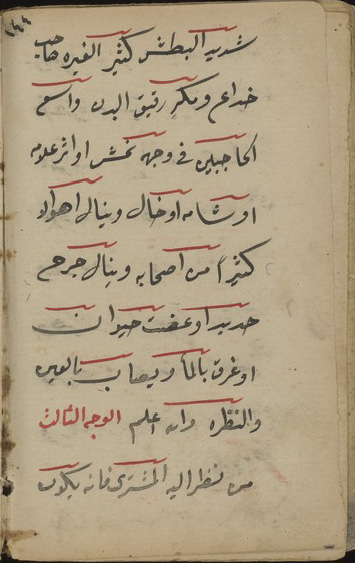 ١٤٤
شديد البطش كثير الغيره صاحب
خداع ومكر رقيق البدن واسع
الحاجبين في وجهه نمش او اثر علامه
او شامه او خال وينال اهوالا
كثيرا من اصحابه وينال جرح
حديد او عضت حيوان
او غرق بالماء ويصاب بالعين
والنظره والله اعلم الوجه الثالث
من نظر اليه المشتري فانه يكون